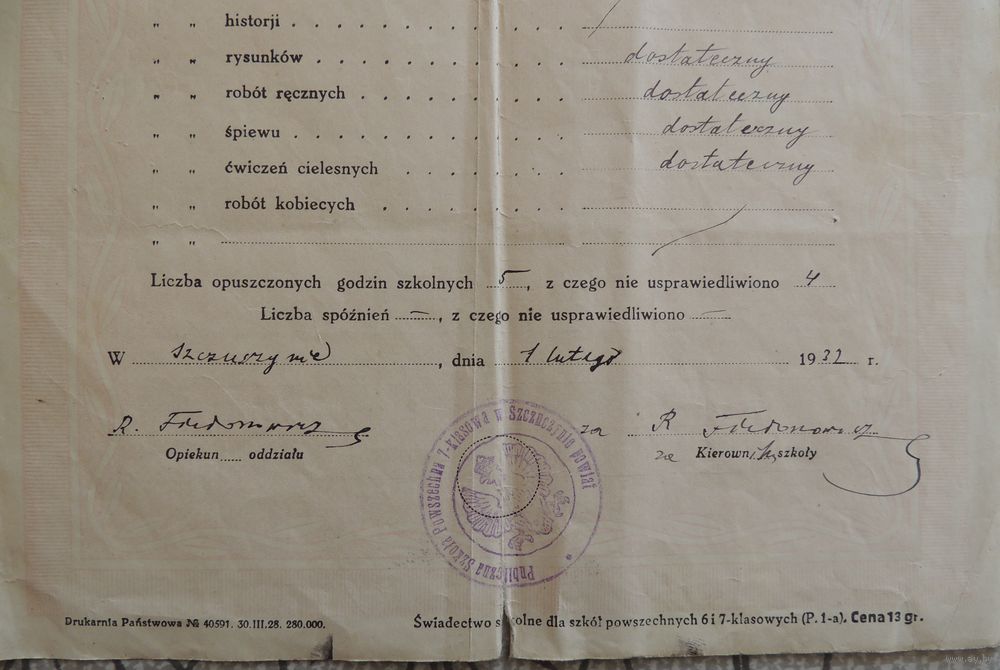 „ „ historji
„ „ rysunków dostateczny
„ „ robót ręcznych dostateczny
„ „ śpiewu dostateczny
„ „ ćwiczeń cielesnych dostateczny
„ „ robót kobiecych
„ „
Liczba opuszczonych godzin szkolnych 5, z czego nie usprawiedliwiono 4
Liczba spóźnień —, z czego nie usprawiedliwiono —
W Szczuczynie, dnia 1 lutego 1932 r.
R. za R
Opiekun oddziału za Kierown szkoły
Publiczna Szkoła Powszechna 7-klasowa w Szczuczynie powiat
Drukarnia Państwowa № 40591. 30.III.28. 280.000.
Świadectwo szkolne dla szkół powszechnych 6 i 7-klasowych (P. 1-a). Cena 13 gr.
www.ay.by